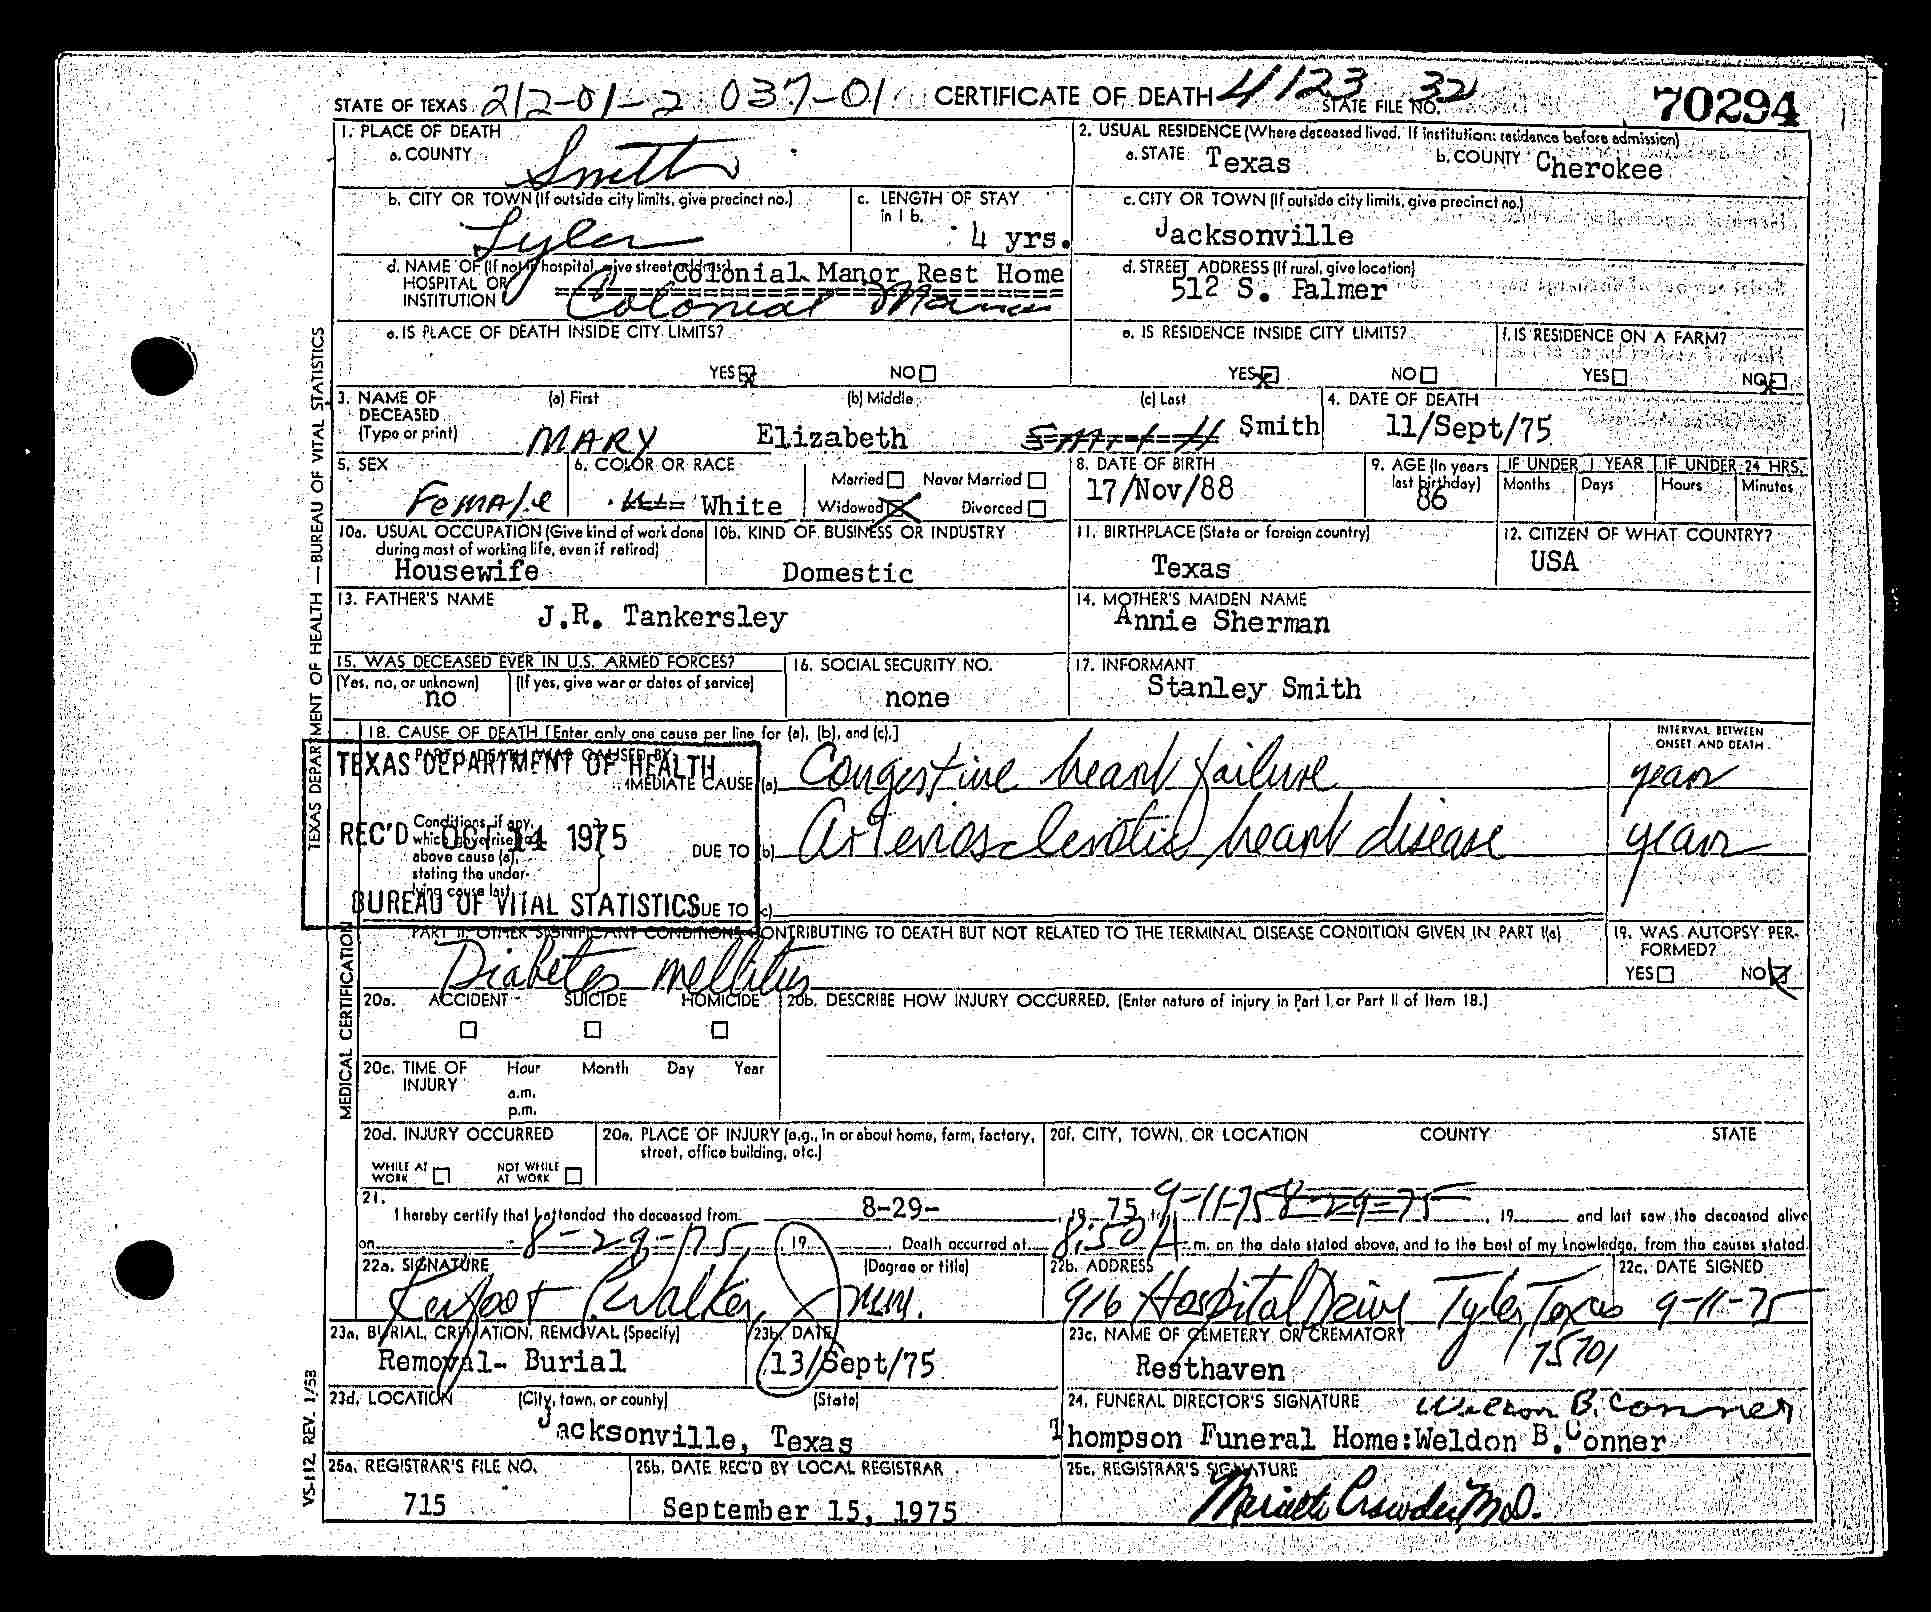 STATE OF TEXAS 212-01-2 037-01 CERTIFICATE OF DEATH 4123 32 STATE FILE NO. 70294
1. PLACE OF DEATH
a. COUNTY Smith
2. USUAL RESIDENCE (Where deceased lived. If institution: residence before admission)
a. STATE Texas b. COUNTY Cherokee
b. CITY OR TOWN (If outside city limits, give precinct no.) Tyler
c. LENGTH OF STAY in 1 b. 4 yrs.
c. CITY OR TOWN (If outside city limits, give precinct no.)
Jacksonville
d. NAME OF (If not in hospital, give street address) HOSPITAL OR INSTITUTION
Colonial Manor Rest Home
Colonial Manor
d. STREET ADDRESS (If rural, give location)
512 S. Palmer
e. IS PLACE OF DEATH INSIDE CITY LIMITS?
YES X NO
e. IS RESIDENCE INSIDE CITY LIMITS?
YES X NO
f. IS RESIDENCE ON A FARM?
YES NO X
3. NAME OF DECEASED (Type or print)
(a) First (b) Middle (c) Last
MARY Elizabeth Smith Smith
4. DATE OF DEATH
11/Sept/75
5. SEX
Female
6. COLOR OR RACE
White
Married Never Married
Widowed X Divorced
8. DATE OF BIRTH
17/Nov/88
9. AGE (In years last birthday)
86
IF UNDER 1 YEAR IF UNDER 24 HRS.
Months Days Hours Minutes
10a. USUAL OCCUPATION (Give kind of work done during most of working life, even if retired)
Housewife
10b. KIND OF BUSINESS OR INDUSTRY
Domestic
11. BIRTHPLACE (State or foreign country)
Texas
12. CITIZEN OF WHAT COUNTRY?
USA
13. FATHER'S NAME
J.R. Tankersley
14. MOTHER'S MAIDEN NAME
Annie Sherman
15. WAS DECEASED EVER IN U.S. ARMED FORCES?
(Yes, no, or unknown) (If yes, give war or dates of service)
no
16. SOCIAL SECURITY NO.
none
17. INFORMANT
Stanley Smith
18. CAUSE OF DEATH [Enter only one cause per line for (a), (b), and (c).]
INTERVAL BETWEEN ONSET AND DEATH
PART I. DEATH WAS CAUSED BY:
IMMEDIATE CAUSE (a) Congestive heart failure
years
Conditions, if any, which gave rise to above cause (a), stating the underlying cause last.
DUE TO (b) Arteriosclerotic heart disease
years
DUE TO (c)
TEXAS DEPARTMENT OF HEALTH
REC'D OCT 14 1975
BUREAU OF VITAL STATISTICS
PART II. OTHER SIGNIFICANT CONDITIONS CONTRIBUTING TO DEATH BUT NOT RELATED TO THE TERMINAL DISEASE CONDITION GIVEN IN PART I(a)
Diabetes mellitus
19. WAS AUTOPSY PERFORMED?
YES NO
20a. ACCIDENT SUICIDE HOMICIDE
20b. DESCRIBE HOW INJURY OCCURRED. (Enter nature of injury in Part I or Part II of Item 18.)
20c. TIME OF INJURY Hour Month Day Year
a.m.
p.m.
20d. INJURY OCCURRED
WHILE AT WORK NOT WHILE AT WORK
20e. PLACE OF INJURY (e.g., in or about home, farm, factory, street, office building, etc.)
20f. CITY, TOWN, OR LOCATION COUNTY STATE
21.
I hereby certify that I attended the deceased from 8-29- 19 75 to 9-11-75 8-29-75, 19 and last saw the deceased alive
on 8-29-75, 19 . Death occurred at 8:50 A. m. on the date stated above, and to the best of my knowledge, from the causes stated.
22a. SIGNATURE (Degree or title)
Walker, M.D.
22b. ADDRESS
916 Hospital Drive Tyler, Texas
75701
22c. DATE SIGNED
9-11-75
23a. BURIAL, CREMATION, REMOVAL (Specify)
Removal- Burial
23b. DATE
13/Sept/75
23c. NAME OF CEMETERY OR CREMATORY
Resthaven
23d. LOCATION (City, town, or county) (State)
Jacksonville, Texas
24. FUNERAL DIRECTOR'S SIGNATURE Weldon B. Conner
Thompson Funeral Home:Weldon B. Conner
25a. REGISTRAR'S FILE NO.
715
25b. DATE REC'D BY LOCAL REGISTRAR
September 15, 1975
25c. REGISTRAR'S SIGNATURE
Crowder, M.D.
TEXAS DEPARTMENT OF HEALTH — BUREAU OF VITAL STATISTICS
MEDICAL CERTIFICATION
VS-112 REV. 1/58